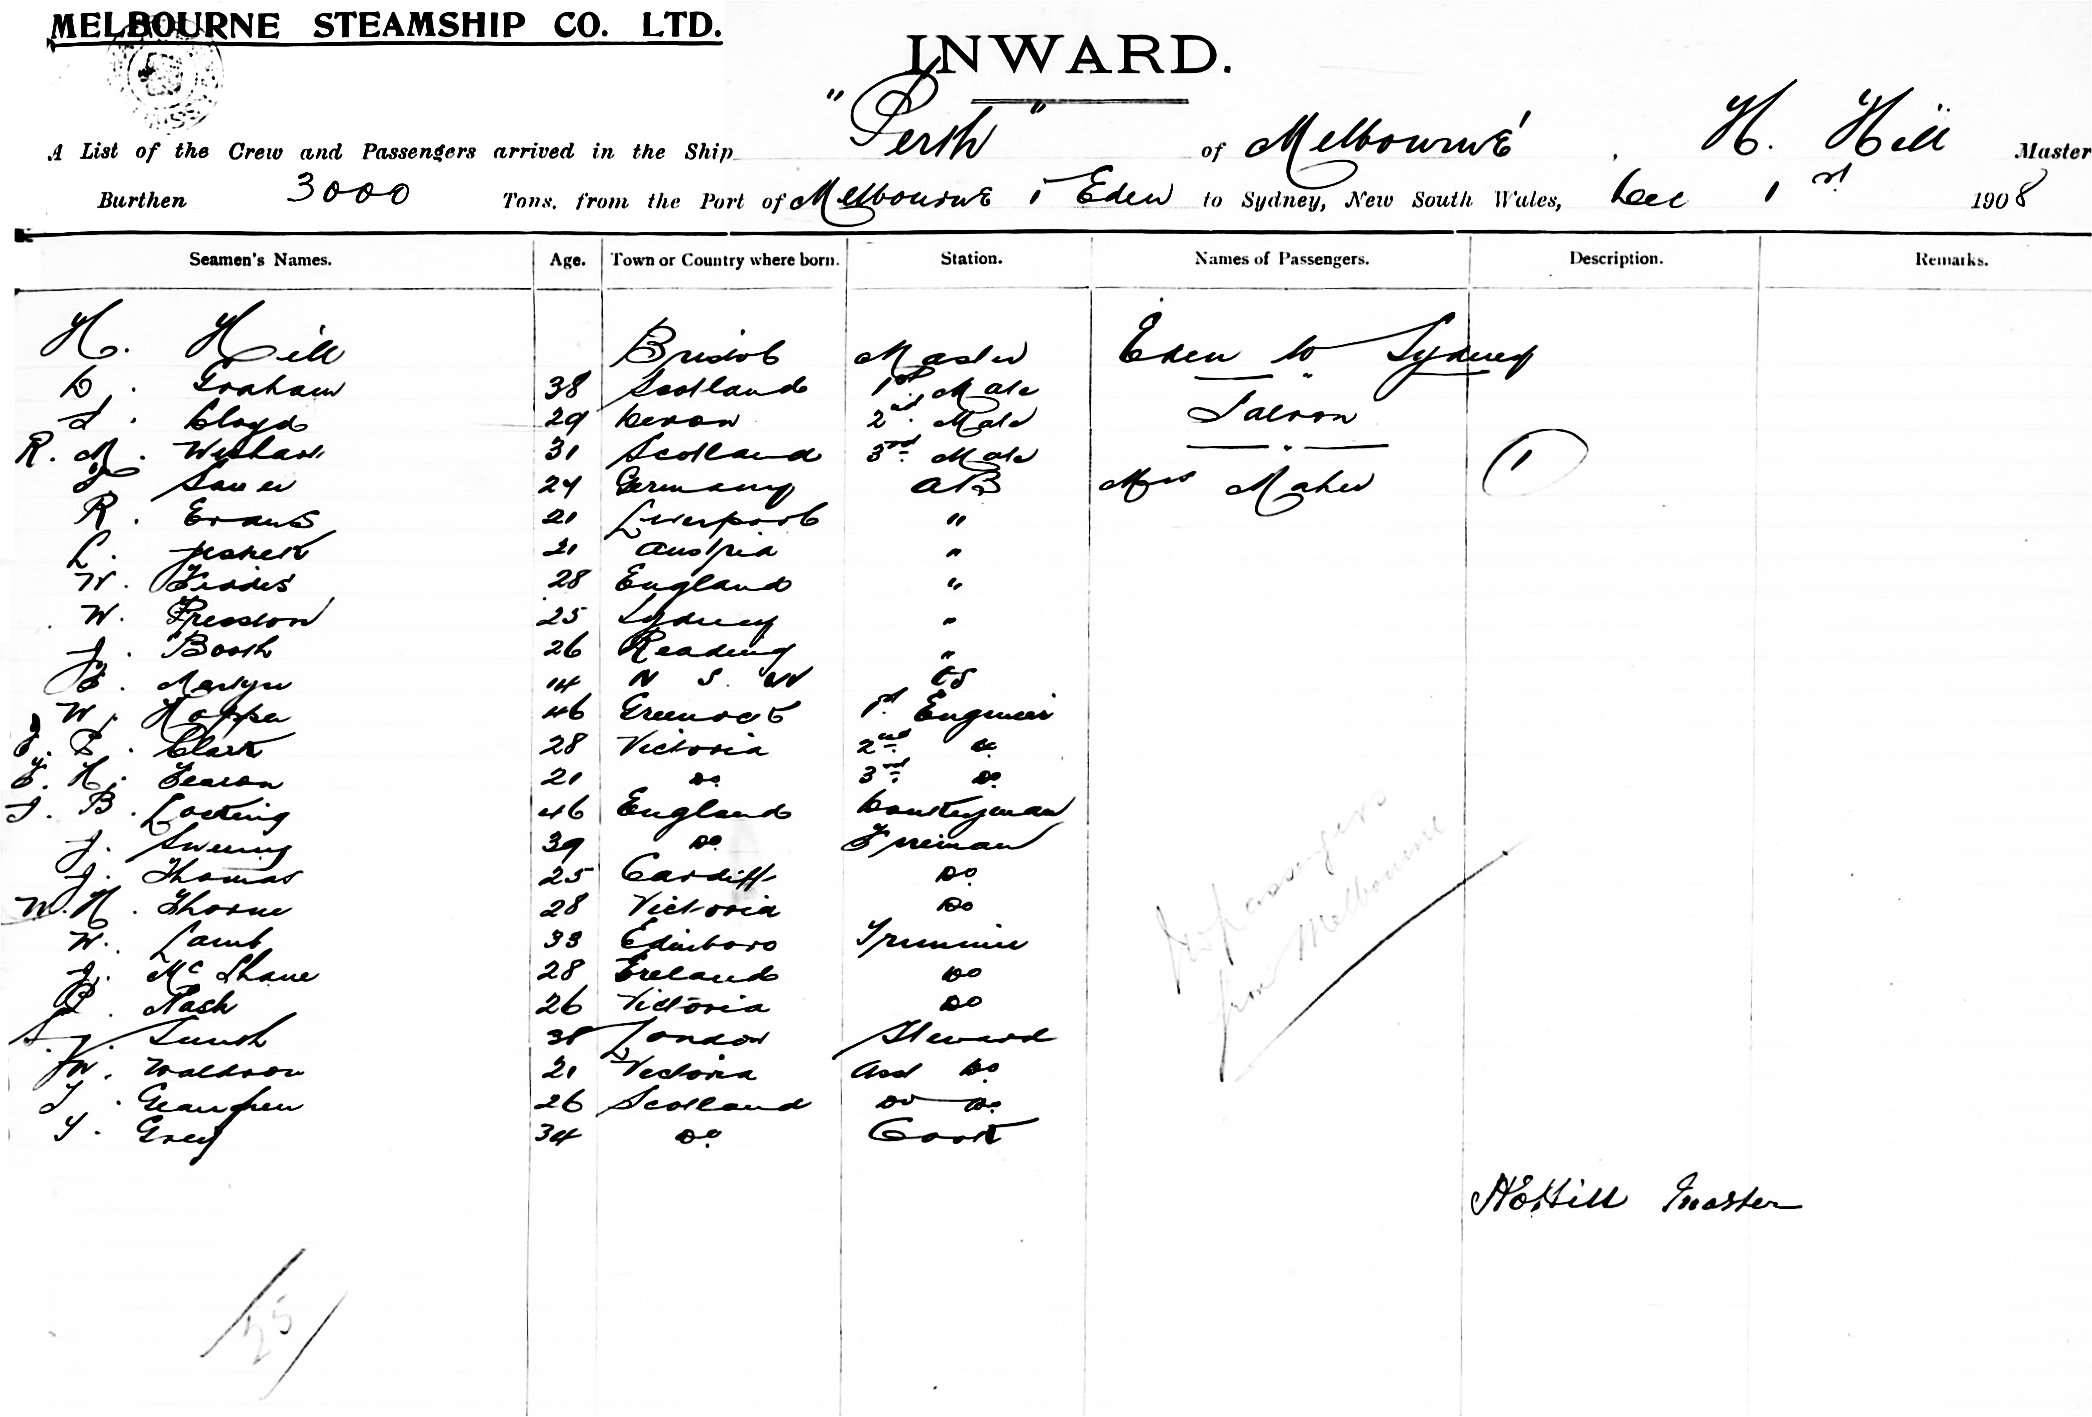 MELBOURNE STEAMSHIP CO. LTD.
INWARD.
A List of the Crew and Passengers arrived in the Ship "Perth" of Melbourne, H. Hill Master
Burthen 3000 Tons, from the Port of Melbourne & Eden to Sydney, New South Wales, Dec 1st 1908
Seamen's Names. Age. Town or Country where born. Station. Names of Passengers. Description. Remarks.
H. Hill Bristol Master Eden to Sydney
D. Graham 38 Scotland 1st Mate
Lloyd 29 Devon 2nd Mate Saloon
R. M. 31 Scotland 3rd Mate
Sauer 24 Germany AB Mrs Maher 1
R. Evans 21 Liverpool "
L. 21 Austria "
W. 28 England "
W. Presston 25 Sydney "
J. Booth 26 Reading "
E. Martyn 14 N S. W OS
W. Hopper 46 Greenock 1st Engineer
Clark 28 Victoria 2nd Do
H. Fearon 21 Do 3rd Do
J. B. Locking 46 England Donkeyman
J. Sweeny 39 Do Fireman
J. Thomas 25 Cardiff Do
W. H. Thorne 28 Victoria Do
W. Lamb 33 Edinboro Trimmer
J. McShane 28 Ireland Do
P. Nash 26 Victoria Do
S. J. 38 London Steward
W. Waldron 21 Victoria Asst Do
26 Scotland Do Do
T. Grey 34 Do Cook
No passengers
from Melbourne
H Hill Master
25